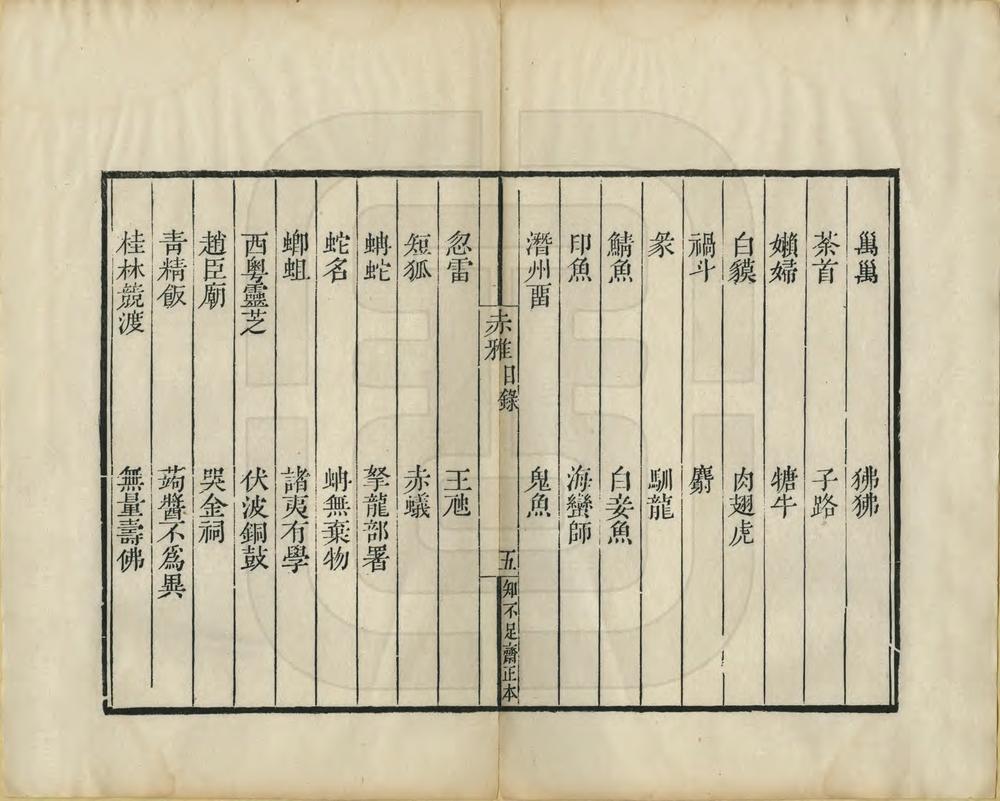 嶲嶲 狒狒
茶首 子路
嬾婦 犣牛
白貘 肉翅虎
禍斗 麝
彖 馴龍
鯖魚 白妾魚
印魚 海蠻師
潛州畱 鬼魚
赤雅 目錄 五 知不足齋正本
忽雷 王虺
短狐 赤蟻
蚺蛇 拏龍部署
蛇名 蚺無棄物
蝍蛆 諸夷有學
西粵靈芝 伏波銅鼓
趙臣廟 哭金祠
青精飯 蒟醬不爲異
桂林競渡 無量壽佛